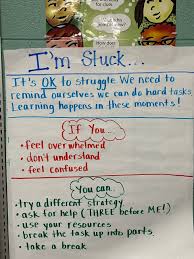 How does
I'm Stuck...
It's OK to struggle. We need to
remind ourselves we can do hard tasks.
Learning happens in these moments!
If You...
• feel overwhelmed
• don't understand
• feel confused
You can...
• try a different strategy
• ask for help (THREE before ME!)
• use your resources
• break the task up into parts
• take a break